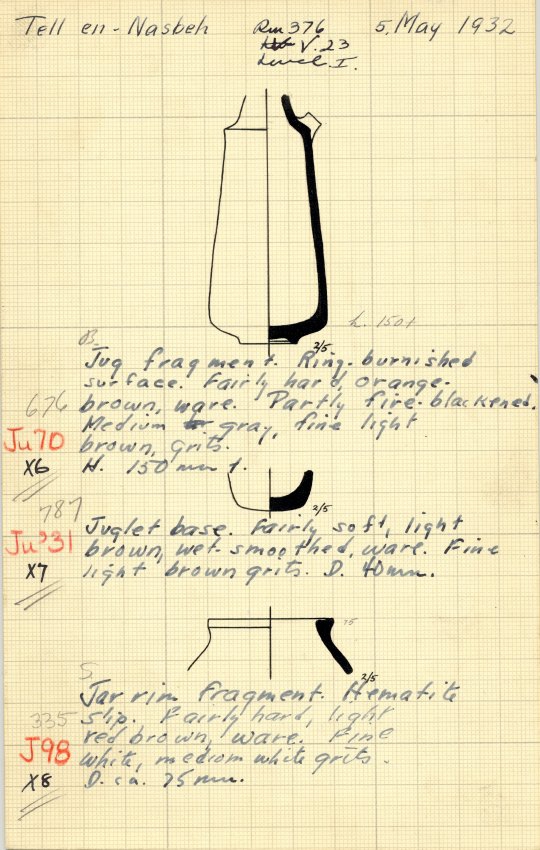 Tell en-Nasbeh Rm 376 5. May 1932
V. 23
Level I.
h. 150+
B.
2/5
Jug fragment. Ring-burnished
surface. Fairly hard, orange-
676 brown, ware. Partly fire-blackened.
Ju70 Medium gray, fine light
brown, grits.
X6 H. 150 mm +.
787 2/5
Juglet base. Fairly soft, light
Ju³31 brown, wet-smoothed, ware. Fine
X7 light brown grits. D. 40 mm.
75
S 2/5
Jar rim fragment. Hematite
335 slip. Fairly hard, light
J98 red brown, ware. Fine
white, medium white grits.
X8 D. ca. 75 mm.